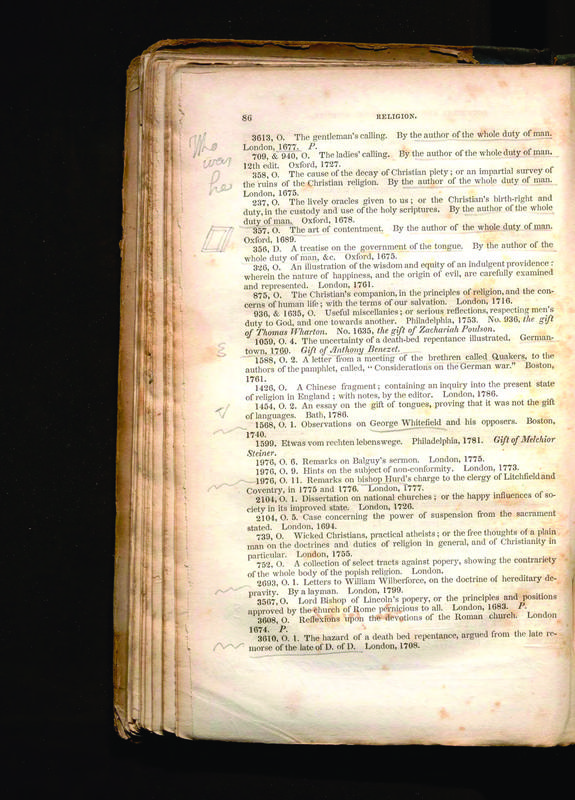 86
RELIGION.
3613, O. The gentleman's calling. By the author of the whole duty of man.
London, 1677. P.
709, & 940, O. The ladies' calling. By the author of the whole duty of man.
12th edit. Oxford, 1727.
358, O. The cause of the decay of Christian piety; or an impartial survey of
the ruins of the Christian religion. By the author of the whole duty of man.
London, 1675.
237, O. The lively oracles given to us; or the Christian's birth-right and
duty, in the custody and use of the holy scriptures. By the author of the whole
duty of man. Oxford, 1678.
357, O. The art of contentment. By the author of the whole duty of man.
Oxford, 1689.
356, D. A treatise on the government of the tongue. By the author of the
whole duty of man, &c. Oxford, 1675.
326, O. An illustration of the wisdom and equity of an indulgent providence:
wherein the nature of happiness, and the origin of evil, are carefully examined
and represented. London, 1761.
875, O. The Christian's companion, in the principles of religion, and the con-
cerns of human life; with the terms of our salvation. London, 1716.
936, & 1635, O. Useful miscellanies; or serious reflections, respecting men's
duty to God, and one towards another. Philadelphia, 1753. No. 936, the gift
of Thomas Wharton. No. 1635, the gift of Zachariah Poulson.
1059, O. 4. The uncertainty of a death-bed repentance illustrated. German-
town, 1760. Gift of Anthony Benezet.
1588, O. 2. A letter from a meeting of the brethren called Quakers, to the
authors of the pamphlet, called, "Considerations on the German war." Boston,
1761.
1426, O. A Chinese fragment; containing an inquiry into the present state
of religion in England; with notes, by the editor. London, 1786.
1454, O. 2. An essay on the gift of tongues, proving that it was not the gift
of languages. Bath, 1786.
1568, O. 1. Observations on George Whitefield and his opposers. Boston,
1740.
1599. Etwas vom rechten lebenswege. Philadelphia, 1781. Gift of Melchior
Steiner.
1976, O. 6. Remarks on Balguy's sermon. London, 1775.
1976, O. 9. Hints on the subject of non-conformity. London, 1773.
1976, O. 11. Remarks on bishop Hurd's charge to the clergy of Litchfield and
Coventry, in 1775 and 1776. London, 1777.
2104, O. 1. Dissertation on national churches; or the happy influences of so-
ciety in its improved state. London, 1726.
2104, O. 5. Case concerning the power of suspension from the sacrament
stated. London, 1694.
739, O. Wicked Christians, practical atheists; or the free thoughts of a plain
man on the doctrines and duties of religion in general, and of Christianity in
particular. London, 1755.
752, O. A collection of select tracts against popery, showing the contrariety
of the whole body of the popish religion. London.
2693, O. 1. Letters to William Wilberforce, on the doctrine of hereditary de-
pravity. By a layman. London, 1799.
3567, O. Lord Bishop of Lincoln's popery, or the principles and positions
approved by the church of Rome pernicious to all. London, 1683. P.
3608, O. Reflexions upon the devotions of the Roman church. London
1674. P.
3610, O. 1. The hazard of a death bed repentance, argued from the late re-
morse of the late of D. of D. London, 1708.
Who
was
he